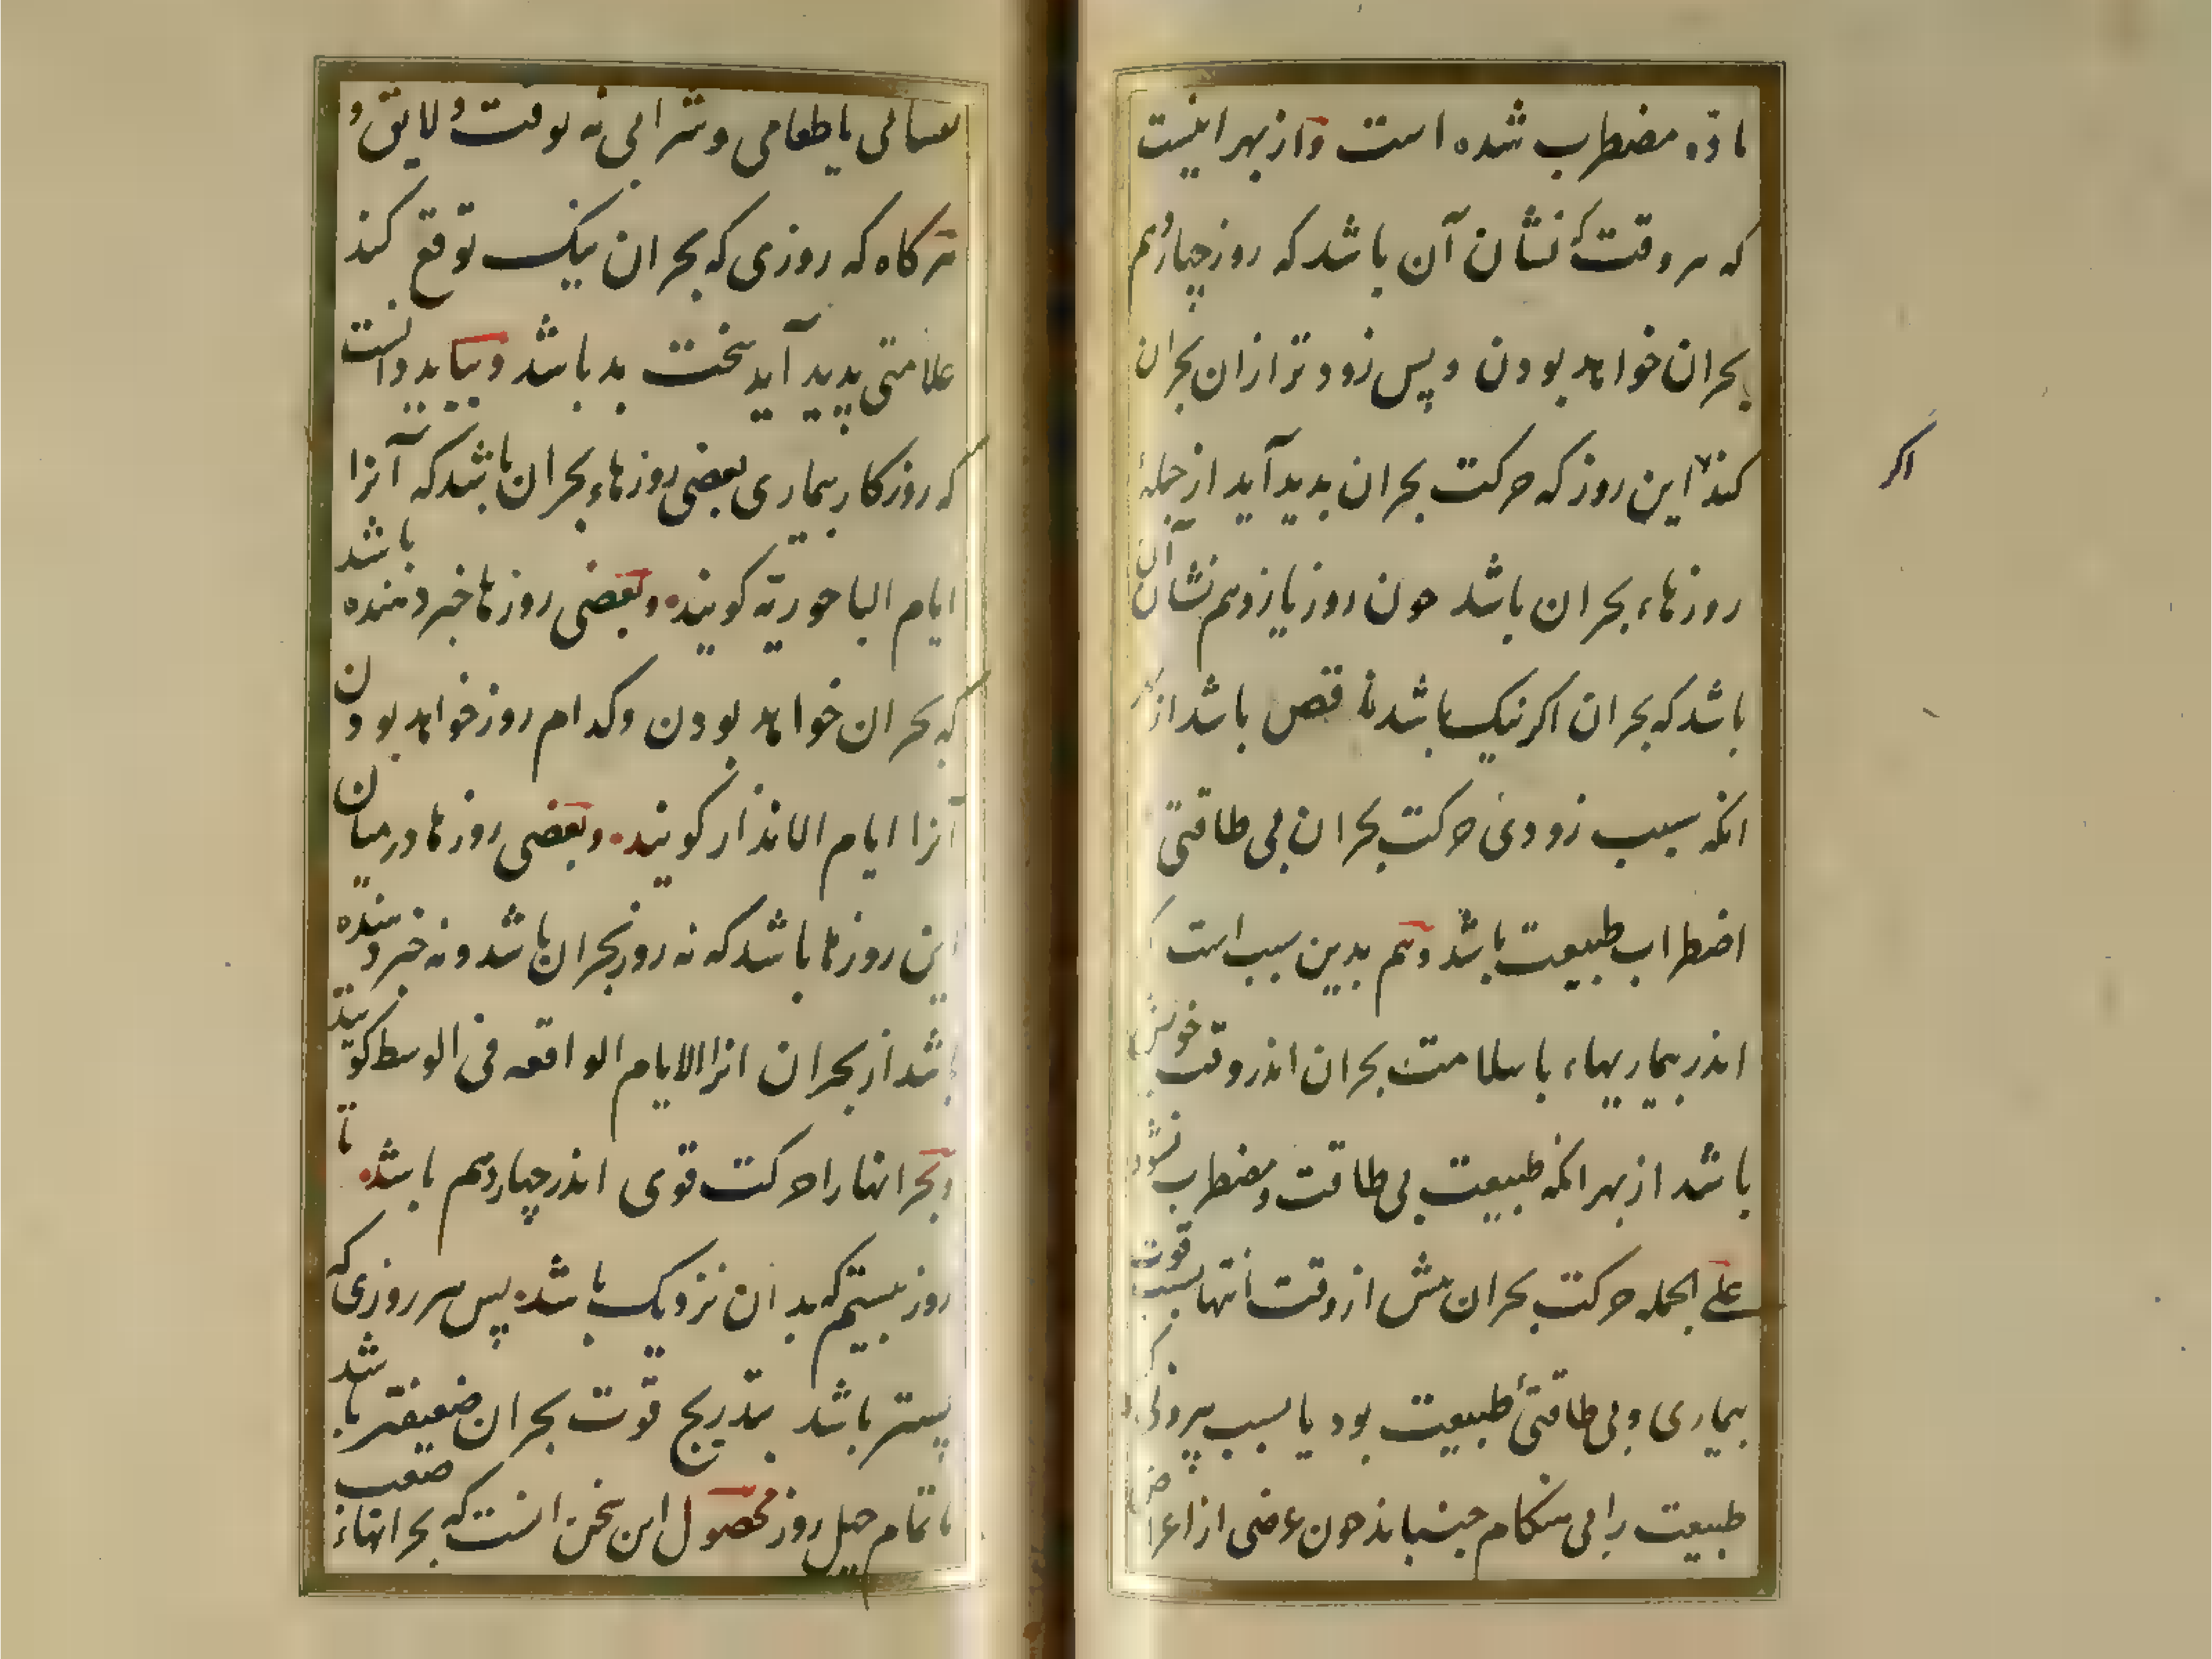 ماده مضطرب شده است و از بهر اینست
که هر وقت که نشان آن باشد که روز چهاردهم
بحران خواهد بودن و پس زودتر ازان بحران
کند این روز که حرکت بحران بدید آید از جمله
اکر
روزهاء بحران باشد چون روز یازدهم نشان آن
باشد که بحران اکر نیک باشد ناقص باشد از بهر
انکه سبب زودی حرکت بحران بی طاقتی
اضطراب طبیعت باشد و هم بدین سبب است که
اندر بیماریهاء با سلامت بحران اندر وقت خویش
باشد از بهر انکه طبیعت بی طاقت و مضطرب نشود
علی الجمله حرکت بحران پیش از وقت انتها بسبب قوت
بیماری و بی طاقتی طبیعت بود یا بسبب بیرونی که
طبیعت را بی هنکام جنباند چون عرضی از اعراض
نفسانی یا طعامی و شرابی نه بوقت و لایق و
هرکاه که روزی که بحران نیک توقع کنند
علامتی بدید آید سخت بد باشد و بباید دانست
که روزکار بیماری بعضی روزهاء بحران باشد که آنرا
ایام الباحوریه کویند و بعضی روزها خبر دهنده باشد
که بحران خواهد بودن و کدام روز خواهد بودن
آنرا ایام الانذار کویند و بعضی روزها در میان
این روزها باشد که نه روز بحران باشد و نه خبر دهنده
باشد از بحران انرا الایام الواقعه فی الوسط کویند
و بحرانها را حرکت قوی اندر چهاردهم باشد تا
روز بیستم که بدان نزدیک باشد پس هر روزی که
پستر باشد بتدریج قوت بحران ضعیفتر باشد
تا تمام چهل روز محصول این سخن انست که بحرانهاء صعب